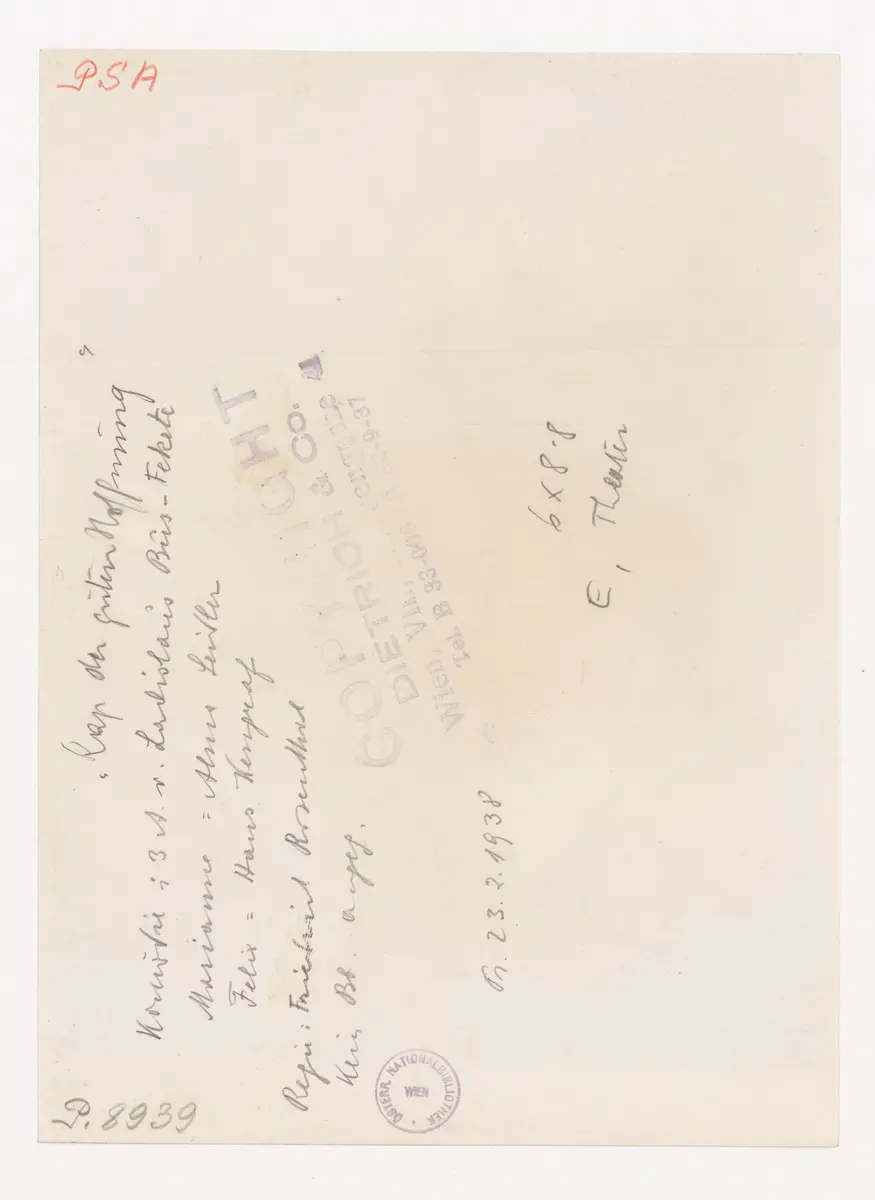 PSA
"Kap der guten Hoffnung"
Komödie i 3 A. v. Ladislaus Bús-Fekete
Marianne = Alma Seidler
Felix = Hans
Regie: Friedrich Rosenthal
Kein Bb. angeg.
COPYRIGHT
DIETRICH & Co.
Wien, VII.,
Tel. B 33-006
Pr. 23.2.1938
6 x 8·8
E, Theater
ÖSTERR. NATIONALBIBLIOTHEK
WIEN
D. 8939